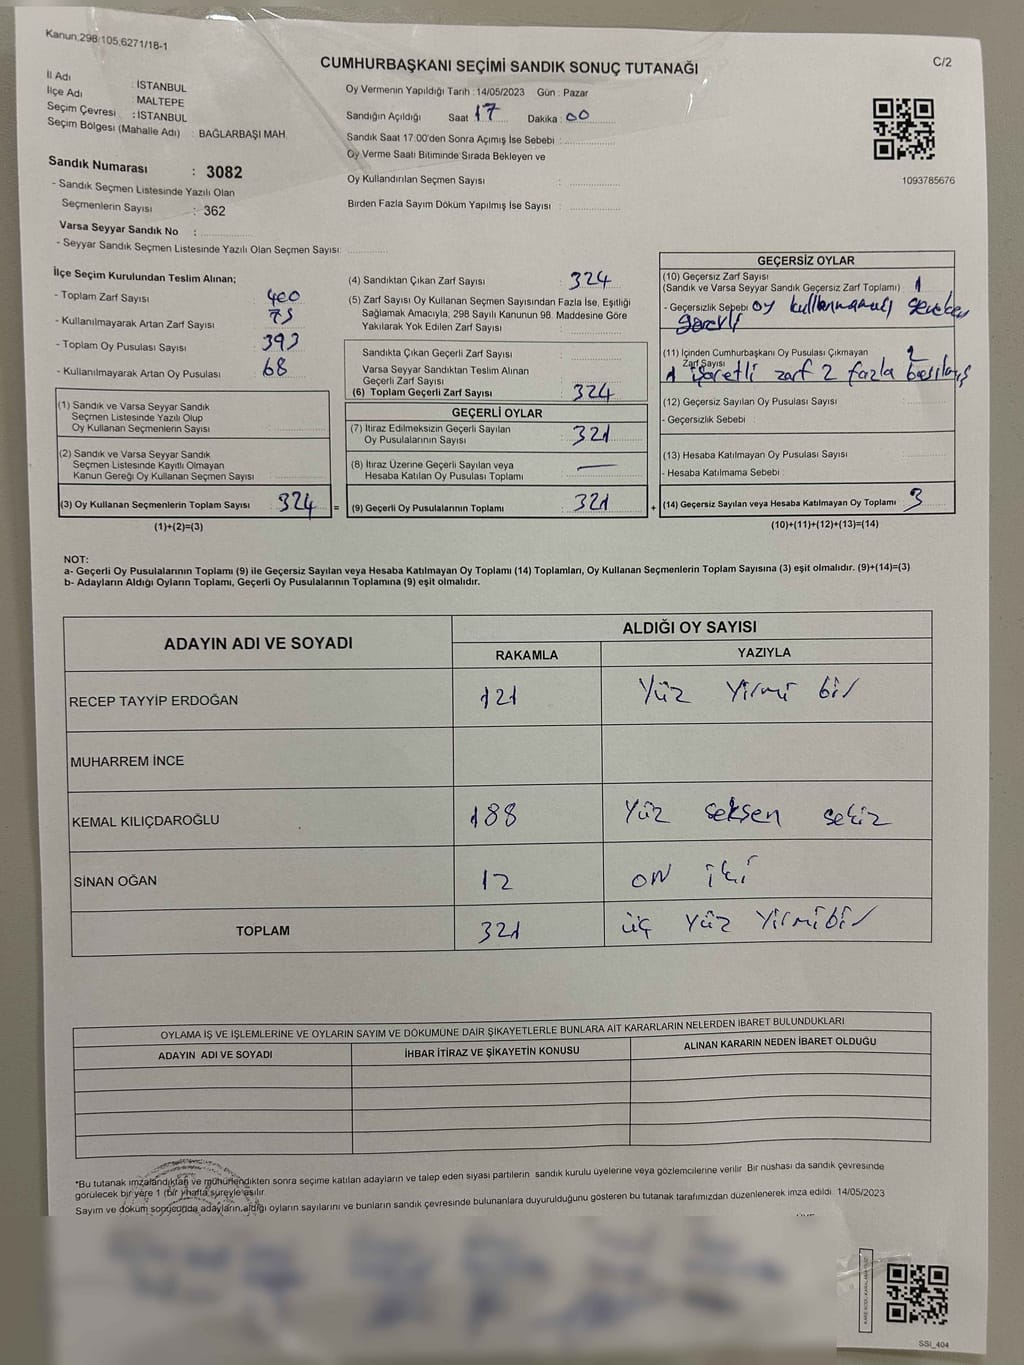 Kanun;298/105,6271/18-1
CUMHURBAŞKANI SEÇİMİ SANDIK SONUÇ TUTANAĞI
C/2
İl Adı : İSTANBUL
İlçe Adı : MALTEPE
Seçim Çevresi : İSTANBUL
Seçim Bölgesi (Mahalle Adı) : BAĞLARBAŞI MAH.
Oy Vermenin Yapıldığı Tarih : 14/05/2023 Gün : Pazar
Sandığın Açıldığı Saat 17 Dakika : 00
Sandık Saat 17:00'den Sonra Açımış İse Sebebi :
Oy Verme Saati Bitiminde Sırada Bekleyen ve
Oy Kullandırılan Seçmen Sayısı :
Birden Fazla Sayım Döküm Yapılmış İse Sayısı :
1093785676
Sandık Numarası : 3082
- Sandık Seçmen Listesinde Yazılı Olan
Seçmenlerin Sayısı : 362
Varsa Seyyar Sandık No :
- Seyyar Sandık Seçmen Listesinde Yazılı Olan Seçmen Sayısı:
İlçe Seçim Kurulundan Teslim Alınan;
- Toplam Zarf Sayısı : 400
- Kullanılmayarak Artan Zarf Sayısı : 75
- Toplam Oy Pusulası Sayısı : 393
- Kullanılmayarak Artan Oy Pusulası : 68
(1) Sandık ve Varsa Seyyar Sandık
Seçmen Listesinde Yazılı Olup
Oy Kullanan Seçmenlerin Sayısı :
(2) Sandık ve Varsa Seyyar Sandık
Seçmen Listesinde Kayıtlı Olmayan
Kanun Gereği Oy Kullanan Seçmen Sayısı :
(3) Oy Kullanan Seçmenlerin Toplam Sayısı : 324 =
(1)+(2)=(3)
(4) Sandıktan Çıkan Zarf Sayısı : 324
(5) Zarf Sayısı Oy Kullanan Seçmen Sayısından Fazla İse, Eşitliği
Sağlamak Amacıyla, 298 Sayılı Kanunun 98. Maddesine Göre
Yakılarak Yok Edilen Zarf Sayısı :
Sandıkta Çıkan Geçerli Zarf Sayısı :
Varsa Seyyar Sandıktan Teslim Alınan
Geçerli Zarf Sayısı :
(6) Toplam Geçerli Zarf Sayısı : 324
GEÇERLİ OYLAR
(7) İtiraz Edilmeksizin Geçerli Sayılan
Oy Pusulalarının Sayısı : 321
(8) İtiraz Üzerine Geçerli Sayılan veya
Hesaba Katılan Oy Pusulası Toplamı : —
(9) Geçerli Oy Pusulalarının Toplamı : 321 +
GEÇERSİZ OYLAR
(10) Geçersiz Zarf Sayısı
(Sandık ve Varsa Seyyar Sandık Geçersiz Zarf Toplamı) : 1
- Geçersizlik Sebebi : oy kullanmamış
(11) İçinden Cumhurbaşkanı Oy Pusulası Çıkmayan
Zarf Sayısı 2
1 işaretli zarf 2 fazla basılmış
(12) Geçersiz Sayılan Oy Pusulası Sayısı :
- Geçersizlik Sebebi :
(13) Hesaba Katılmayan Oy Pusulası Sayısı :
- Hesaba Katılmama Sebebi :
(14) Geçersiz Sayılan veya Hesaba Katılmayan Oy Toplamı : 3
(10)+(11)+(12)+(13)=(14)
NOT:
a- Geçerli Oy Pusulalarının Toplamı (9) ile Geçersiz Sayılan veya Hesaba Katılmayan Oy Toplamı (14) Toplamları, Oy Kullanan Seçmenlerin Toplam Sayısına (3) eşit olmalıdır. (9)+(14)=(3)
b- Adayların Aldığı Oyların Toplamı, Geçerli Oy Pusulalarının Toplamına (9) eşit olmalıdır.
ADAYIN ADI VE SOYADI
ALDIĞI OY SAYISI
RAKAMLA YAZIYLA
RECEP TAYYİP ERDOĞAN 121 Yüz Yirmi bir
MUHARREM İNCE
KEMAL KILIÇDAROĞLU 188 Yüz seksen sekiz
SİNAN OĞAN 12 on iki
TOPLAM 321 üç Yüz Yirmibir
OYLAMA İŞ VE İŞLEMLERİNE VE OYLARIN SAYIM VE DÖKÜMÜNE DAİR ŞİKAYETLERLE BUNLARA AİT KARARLARIN NELERDEN İBARET BULUNDUKLARI
ADAYIN ADI VE SOYADI İHBAR İTİRAZ VE ŞİKAYETİN KONUSU ALINAN KARARIN NEDEN İBARET OLDUĞU
*Bu tutanak imzalandıktan ve mühürlendikten sonra seçime katılan adayların ve talep eden siyasi partilerin sandık kurulu üyelerine veya gözlemcilerine verilir. Bir nüshası da sandık çevresinde
görülecek bir yere 1 (bir) hafta süreyle asılır.
Sayım ve döküm sonucunda adayların aldığı oyların sayılarını ve bunların sandık çevresinde bulunanlara duyurulduğunu gösteren bu tutanak tarafımızdan düzenlenerek imza edildi. 14/05/2023
SSİ_404